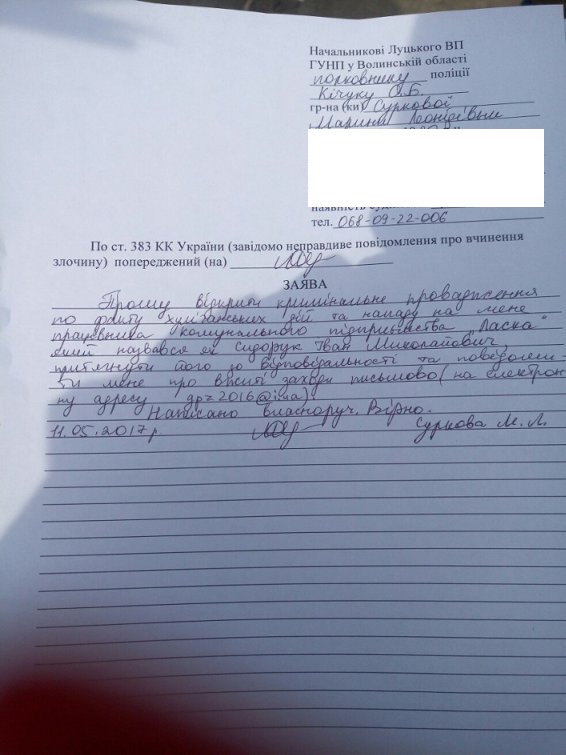 Начальникові Луцького ВП
ГУНП у Волинській області
полковнику поліції
Кічуку О.Б.
гр-на (ки) Суркової
Марини Леонідівни
наявність
тел. 068-09-22-006
По ст. 383 КК України (завідомо неправдиве повідомлення про вчинення
злочину) попереджений (на)
ЗАЯВА
Прошу відкрити кримінальне провадження
по факту хуліганських дій та нападу на мене
працівника комунального підприємства "Ласка"
який назвався як Сидорук Іван Миколайович,
притягнути того до відповідальності та повідоми
ти мене про вжиті заходи письмово (на електрон
ну адресу gpz2016@i.ua)
Написано власноруч. Вірно.
11.05.2017 р. Суркова М. Л.